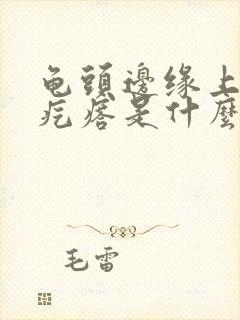 龟頭邊缘上
疙瘩是什麼
毛雷